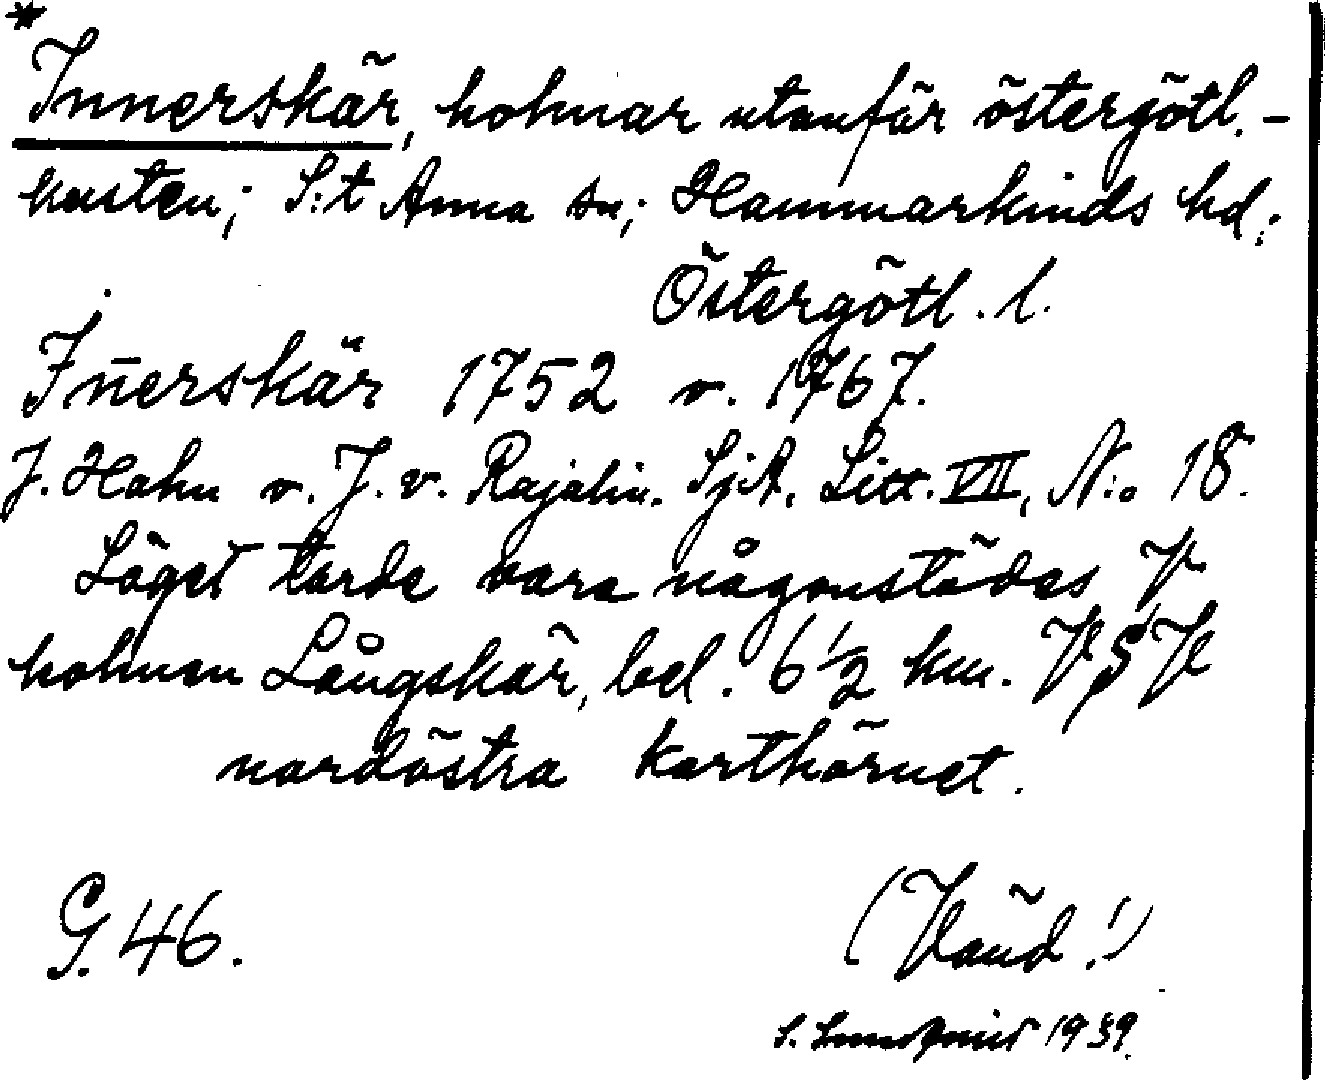 *
Innerskär, holmar utanför östergötl.-
kusten; S:t Anna sn; Hammarkinds hd;
Östergötl. l.
Iñerskär 1752 o. 1767.
J. Hahn o. J. v. Rajalin. SjA, Litt. VII, N:o 18.
Läget torde vara någonstädes V
holmen Långskär, bel. 6 1/2 km. VSV
nordöstra korthörnet.
G. 46.
(Vänd!)
S. Lundqvist 1939.